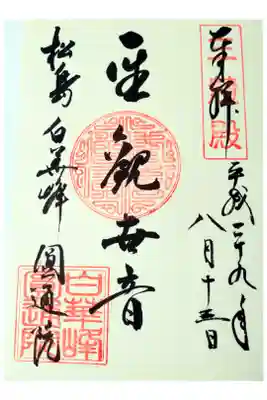 奉拝
平成二十九年
八月十五日
聖観世音
松島 白華峰 圓通院
白華峰
圓通院